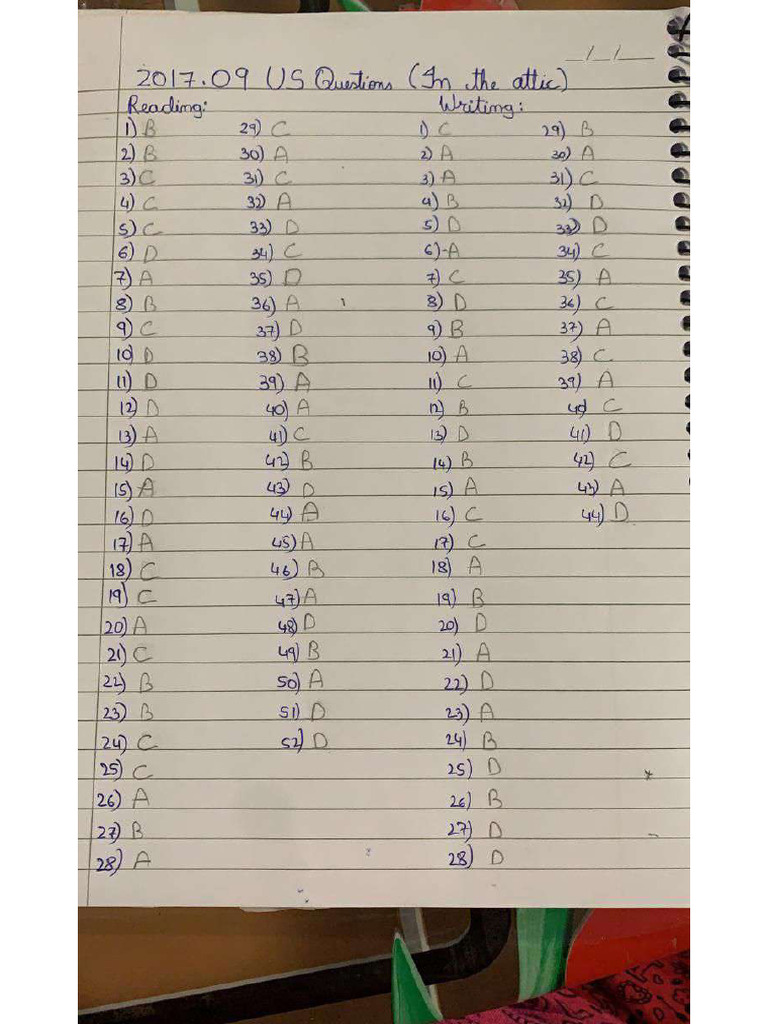 _/_/_
2017.09 US Questions (In the attic)
Reading: Writing:
1) B 29) C 1) C 29) B
2) B 30) A 2) A 30) A
3) C 31) C 3) A 31) C
4) C 32) A 4) B 32) D
5) C 33) D 5) D 33) D
6) D 34) C 6)-A 34) C
7) A 35) D 7) C 35) A
8) B 36) A 8) D 36) C
9) C 37) D 9) B 37) A
10) D 38) B 10) A 38) C
11) D 39) A 11) C 39) A
12) D 40) A 12) B 40) C
13) A 41) C 13) D 41) D
14) D 42) B 14) B 42) C
15) A 43) D 15) A 43) A
16) D 44) A 16) C 44) D
17) A 45) A 17) C
18) C 46) B 18) A
19) C 47) A 19) B
20) A 48) D 20) D
21) C 49) B 21) A
22) B 50) A 22) D
23) B 51) D 23) A
24) C 52) D 24) B
25) C 25) D
26) A 26) B
27) B 27) D
28) A 28) D